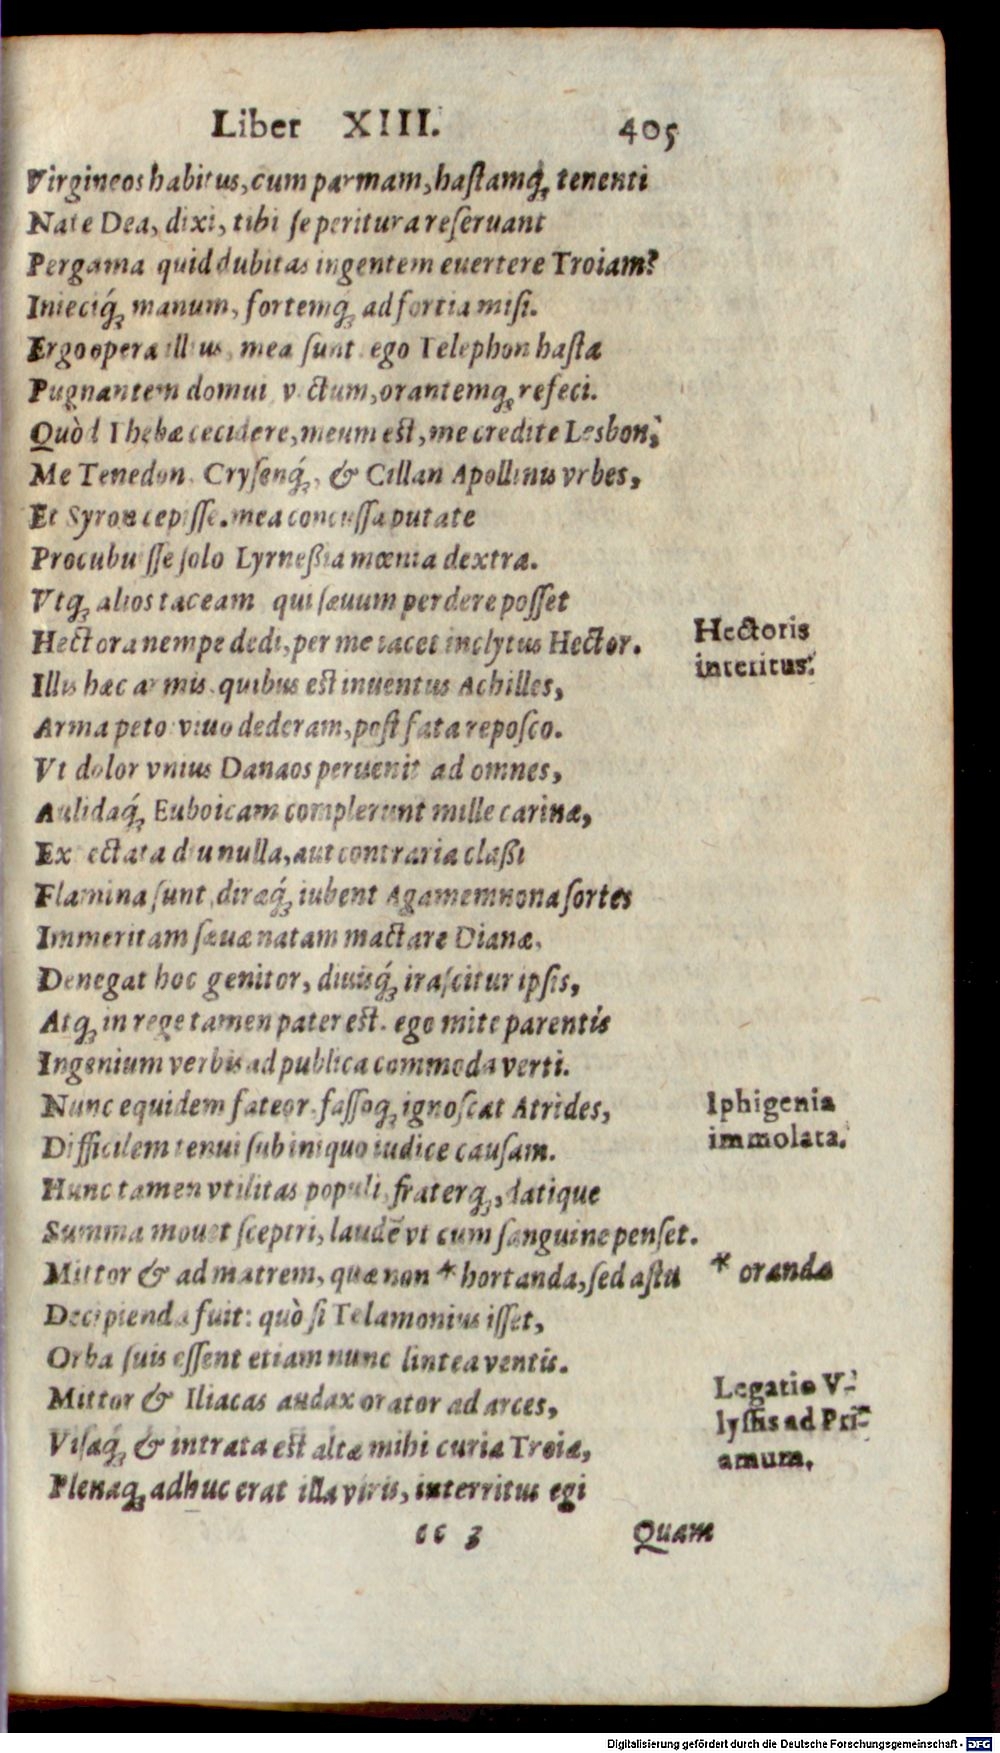 Liber XIII. 405
Virgineos habitus, cum parmam, hastamq́; tenenti
Nate Dea, dixi, tibi se peritura reseruant
Pergama quid dubitas ingentem euertere Troiam?
Inieciq́; manum, fortemq; ad fortia misi.
Ergo opera illius, mea sunt. ego Telephon hasta
Pugnantem domui victum, orantemq; refeci.
Quòd Thebæ cecidere, meum est, me credite Lesbon,
Me Tenedon, Crysenq́;, & Cillan Apollinis vrbes,
Et Syron cepisse. mea concussa putate
Procubuisse solo Lyrneßia mœnia dextra.
Vtq; alios taceam qui sæuum perdere posset
Hectora nempe dedi, per me iacet inclytus Hector.
Hectoris
interitus.
Illis hæc armis, quibus est inuentus Achilles,
Arma peto viuo dederam, post fata reposco.
Vt dolor vnius Danaos peruenit ad omnes,
Aulidaq́; Euboicam complerunt mille carinæ,
Expectata diu nulla, aut contraria claßi
Flamina sunt, diræq́; iubent Agamemnona sortes
Immeritam sæuæ natam mactare Dianæ.
Denegat hoc genitor, diuisq́; irascitur ipsis,
Atq; in rege tamen pater est. ego mite parentis
Ingenium verbis ad publica commoda verti.
Nunc equidem fateor, fassoq; ignoscat Atrides,
Iphigenia
immolata.
Difficilem tenui sub iniquo iudice causam.
Hunc tamen vtilitas populi, fraterq;, datique
Summa mouet sceptri, laudē vt cum sanguine penset.
Mittor & ad matrem, quæ non * hortanda, sed astu
* oranda
Decipienda fuit: quò si Telamonius isset,
Orba suis essent etiam nunc lintea ventis.
Mittor & Iliacas audax orator ad arces,
Legatio V-
lyssis ad Pri-
amum.
Visaq́; & intrata est altæ mihi curia Troiæ,
Plenaq; adhuc erat illa viris, interritus egi
cc 3 Quam
Digitalisierung gefördert durch die Deutsche Forschungsgemeinschaft - DFG